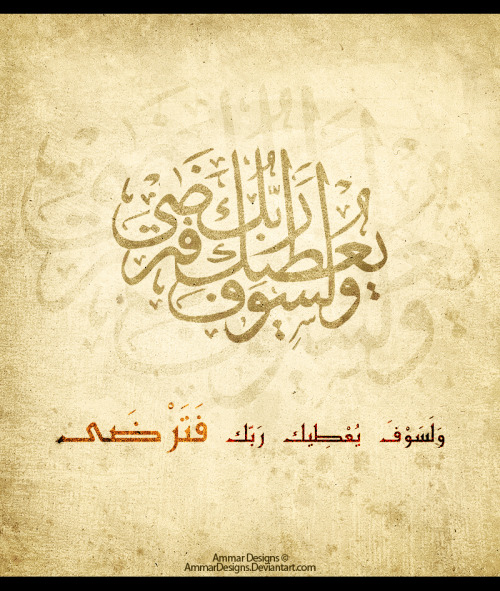 ولسوف يعطيك ربك فترضى
وَلَسَوْفَ يُعْطِيك رَبَك فَتَرْضَى
Ammar Designs ©
AmmarDesigns.Deviantart.com